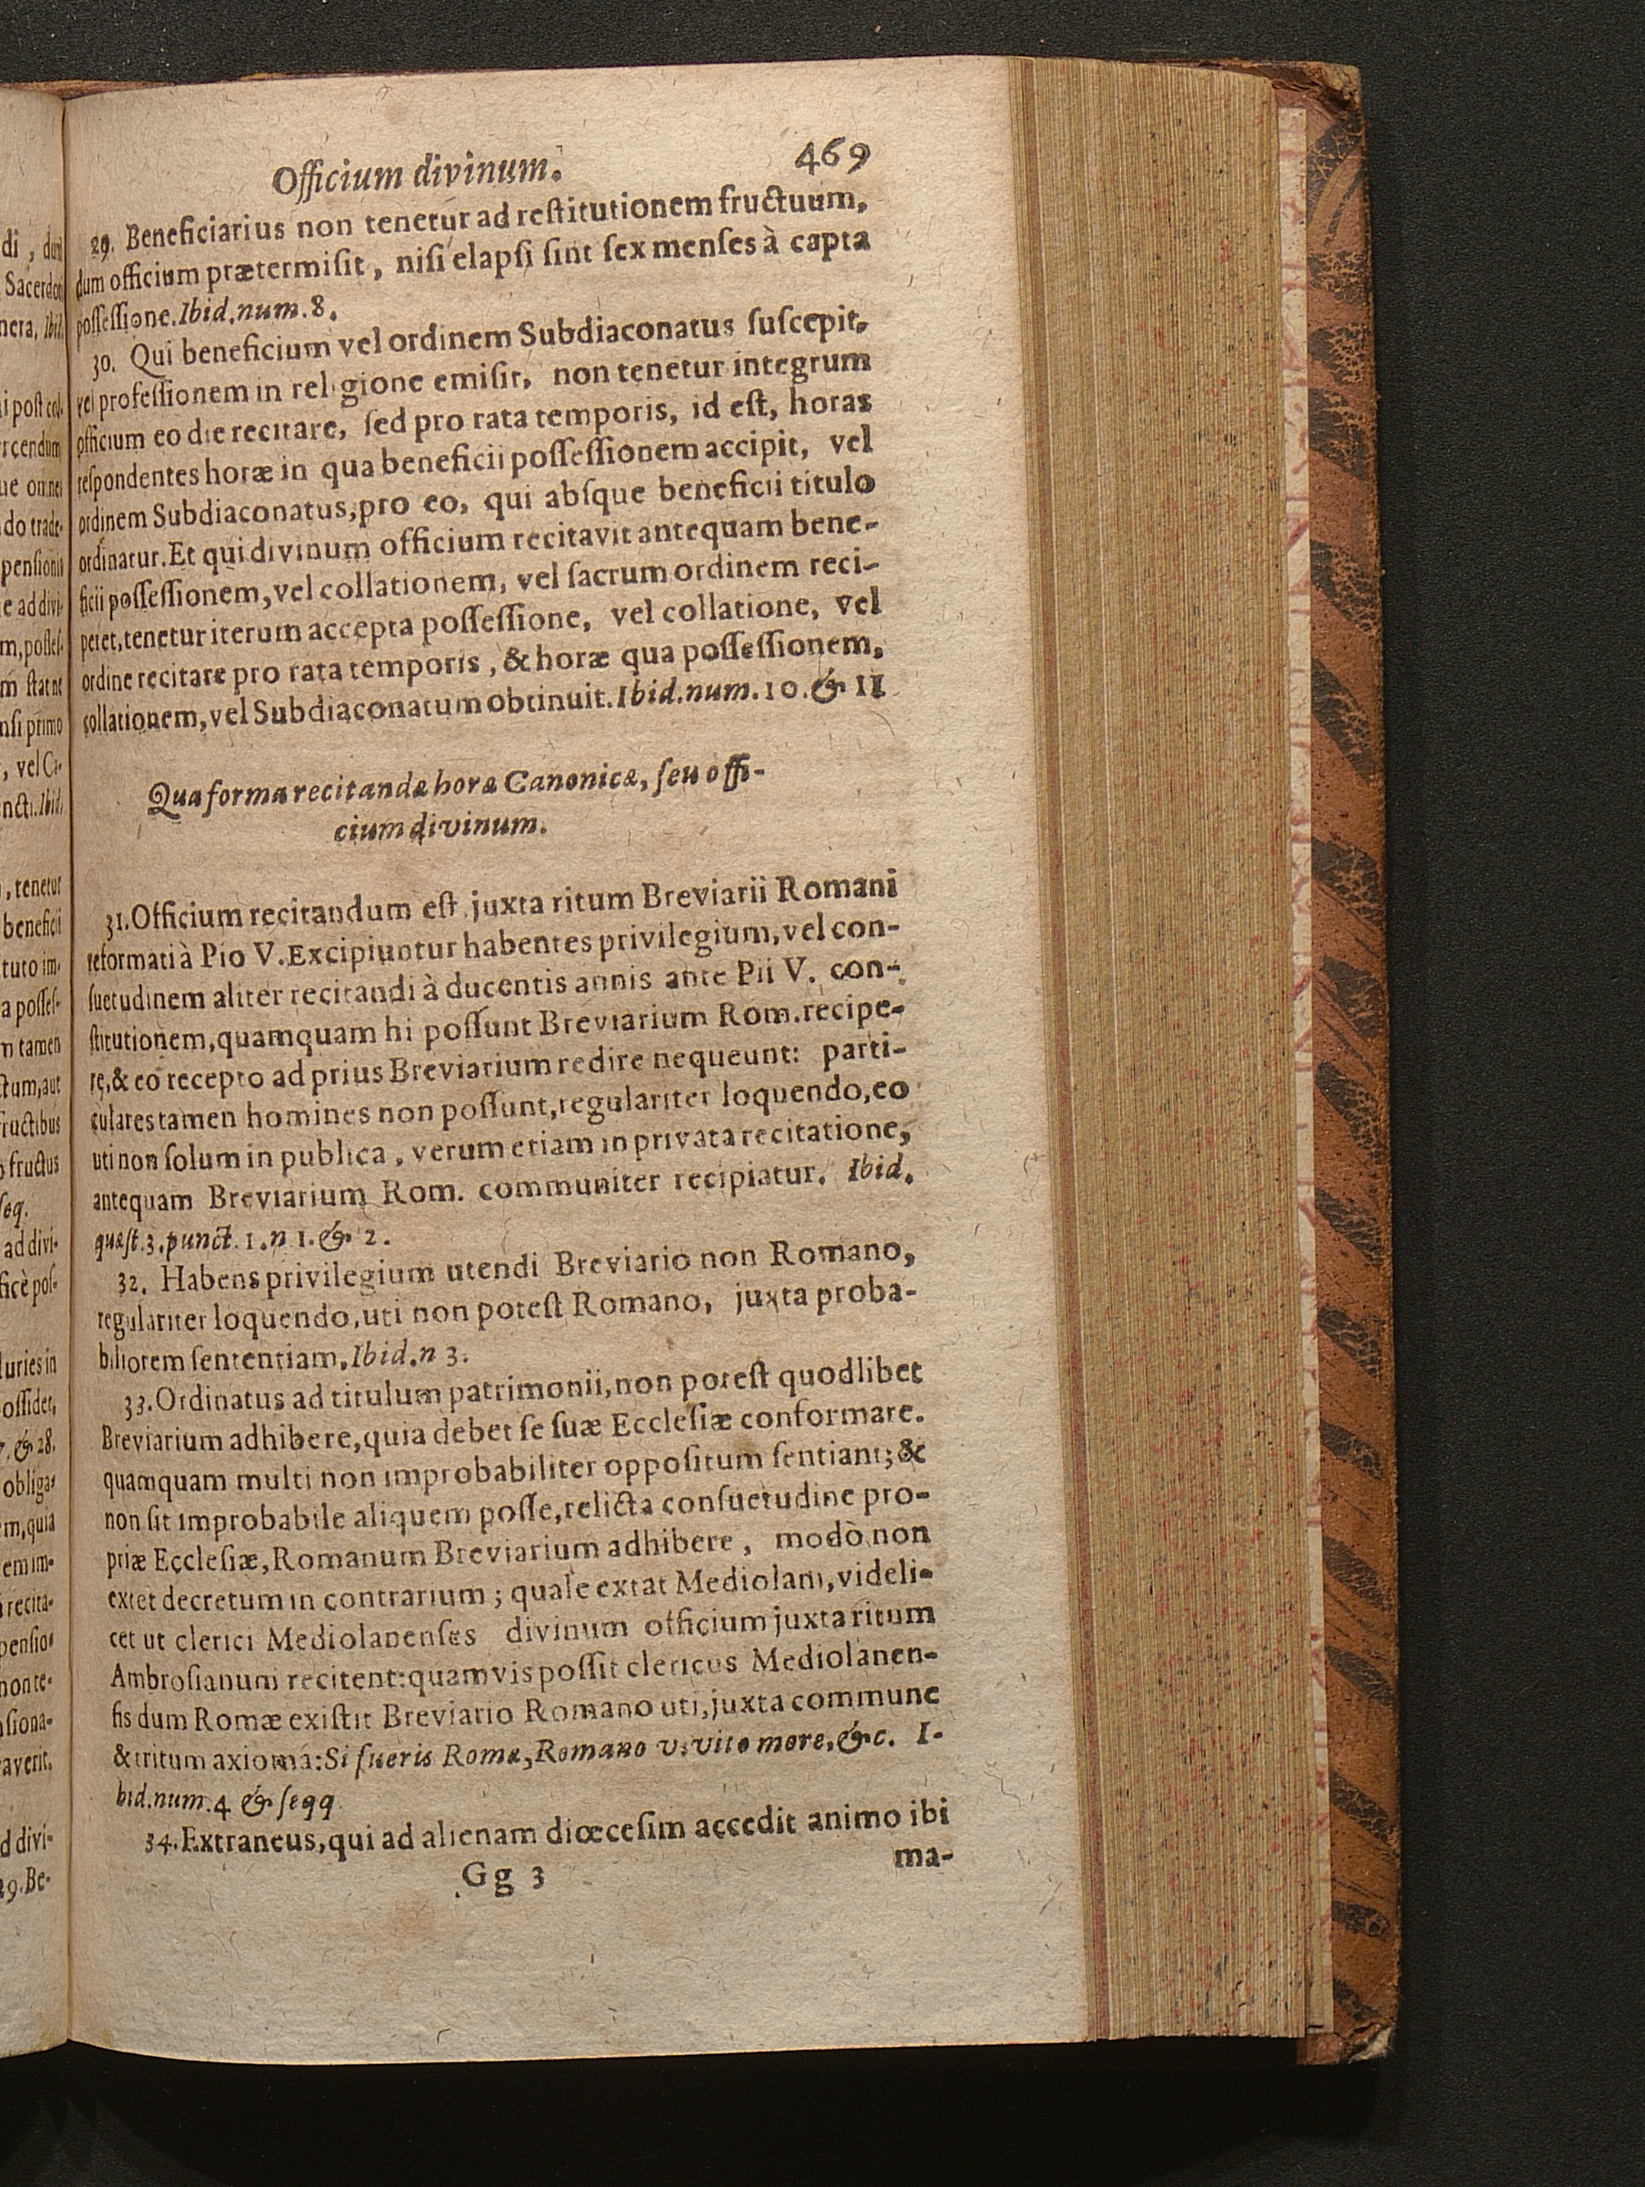 Officium divinum. 469
29. Beneficiarius non tenetur ad reſtitutionem fructuum,
dum officium prætermiſit, niſi elapſi ſint ſex menſes à capta
poſſeſſione. Ibid. num. 8.
30. Qui beneficium vel ordinem Subdiaconatus ſuſcepit,
vel profeſſionem in religione emiſit, non tenetur integrum
officium eo die recitare, ſed pro rata temporis, id eſt, horas
reſpondentes horæ in qua beneficii poſſeſſionem accipit, vel
ordinem Subdiaconatus, pro eo, qui abſque beneficii titulo
ordinatur. Et qui divinum officium recitavit antequam bene-
ficii poſſeſſionem, vel collationem, vel ſacrum ordinem reci-
peret, tenetur iterum accepta poſſeſſione, vel collatione, vel
ordine recitare pro rata temporis, & horæ qua poſſeſſionem,
collationem, vel Subdiaconatum obtinuit. Ibid. num. 10. & 11
Qua forma recitandæ horæ Canonicæ, ſeu offi-
cium divinum.
31. Officium recitandum eſt juxta ritum Breviarii Romani
reformati à Pio V. Excipiuntur habentes privilegium, vel con-
ſuetudinem aliter recitandi à ducentis annis ante Pii V. con-
ſtitutionem, quamquam hi poſſunt Breviarium Rom. recipe-
re, & eo recepto ad prius Breviarium redire nequeunt: parti-
culares tamen homines non poſſunt, regulariter loquendo, eo
uti non ſolum in publica, verum etiam in privata recitatione,
antequam Breviarium Rom. communiter recipiatur. Ibid.
quæſt. 3. punct. 1. n 1. & 2.
32. Habens privilegium utendi Breviario non Romano,
regulariter loquendo, uti non poteſt Romano, juxta proba-
biliorem ſententiam, Ibid. n 3.
33. Ordinatus ad titulum patrimonii, non poteſt quodlibet
Breviarium adhibere, quia debet ſe ſuæ Eccleſiæ conformare.
quamquam multi non improbabiliter oppoſitum ſentiant; &
non ſit improbabile aliquem poſſe, relicta conſuetudine pro-
priæ Eccleſiæ, Romanum Breviarium adhibere, modò non
extet decretum in contrarium; quale extat Mediolani, videli-
cet ut clerici Mediolanenſes divinum officium juxta ritum
Ambroſianum recitent: quamvis poſſit clericus Mediolanen-
ſis dum Romæ exiſtit Breviario Romano uti, juxta commune
& tritum axioma: Si fueris Romæ, Romano vivito more, &c. I-
bid. num. 4 & ſeqq
34. Extraneus, qui ad alienam diœceſim accedit animo ibi
Gg 3 ma-